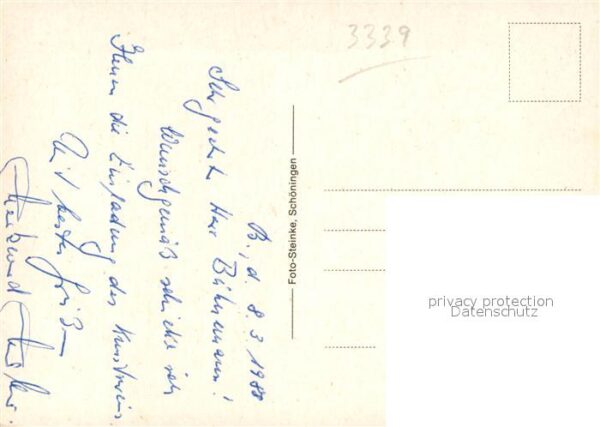 B., d. 8.3.1988
Sehr geehrter Herr Bührmann!
Wunschgemäß schicke ich
Ihnen die Einladung des Kunstvereins
Mit besten Grüßen
Foto-Steinke, Schöningen
3339
privacy protection
Datenschutz